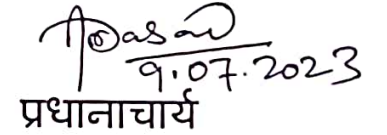 9.07.2023
प्रधानाचार्य